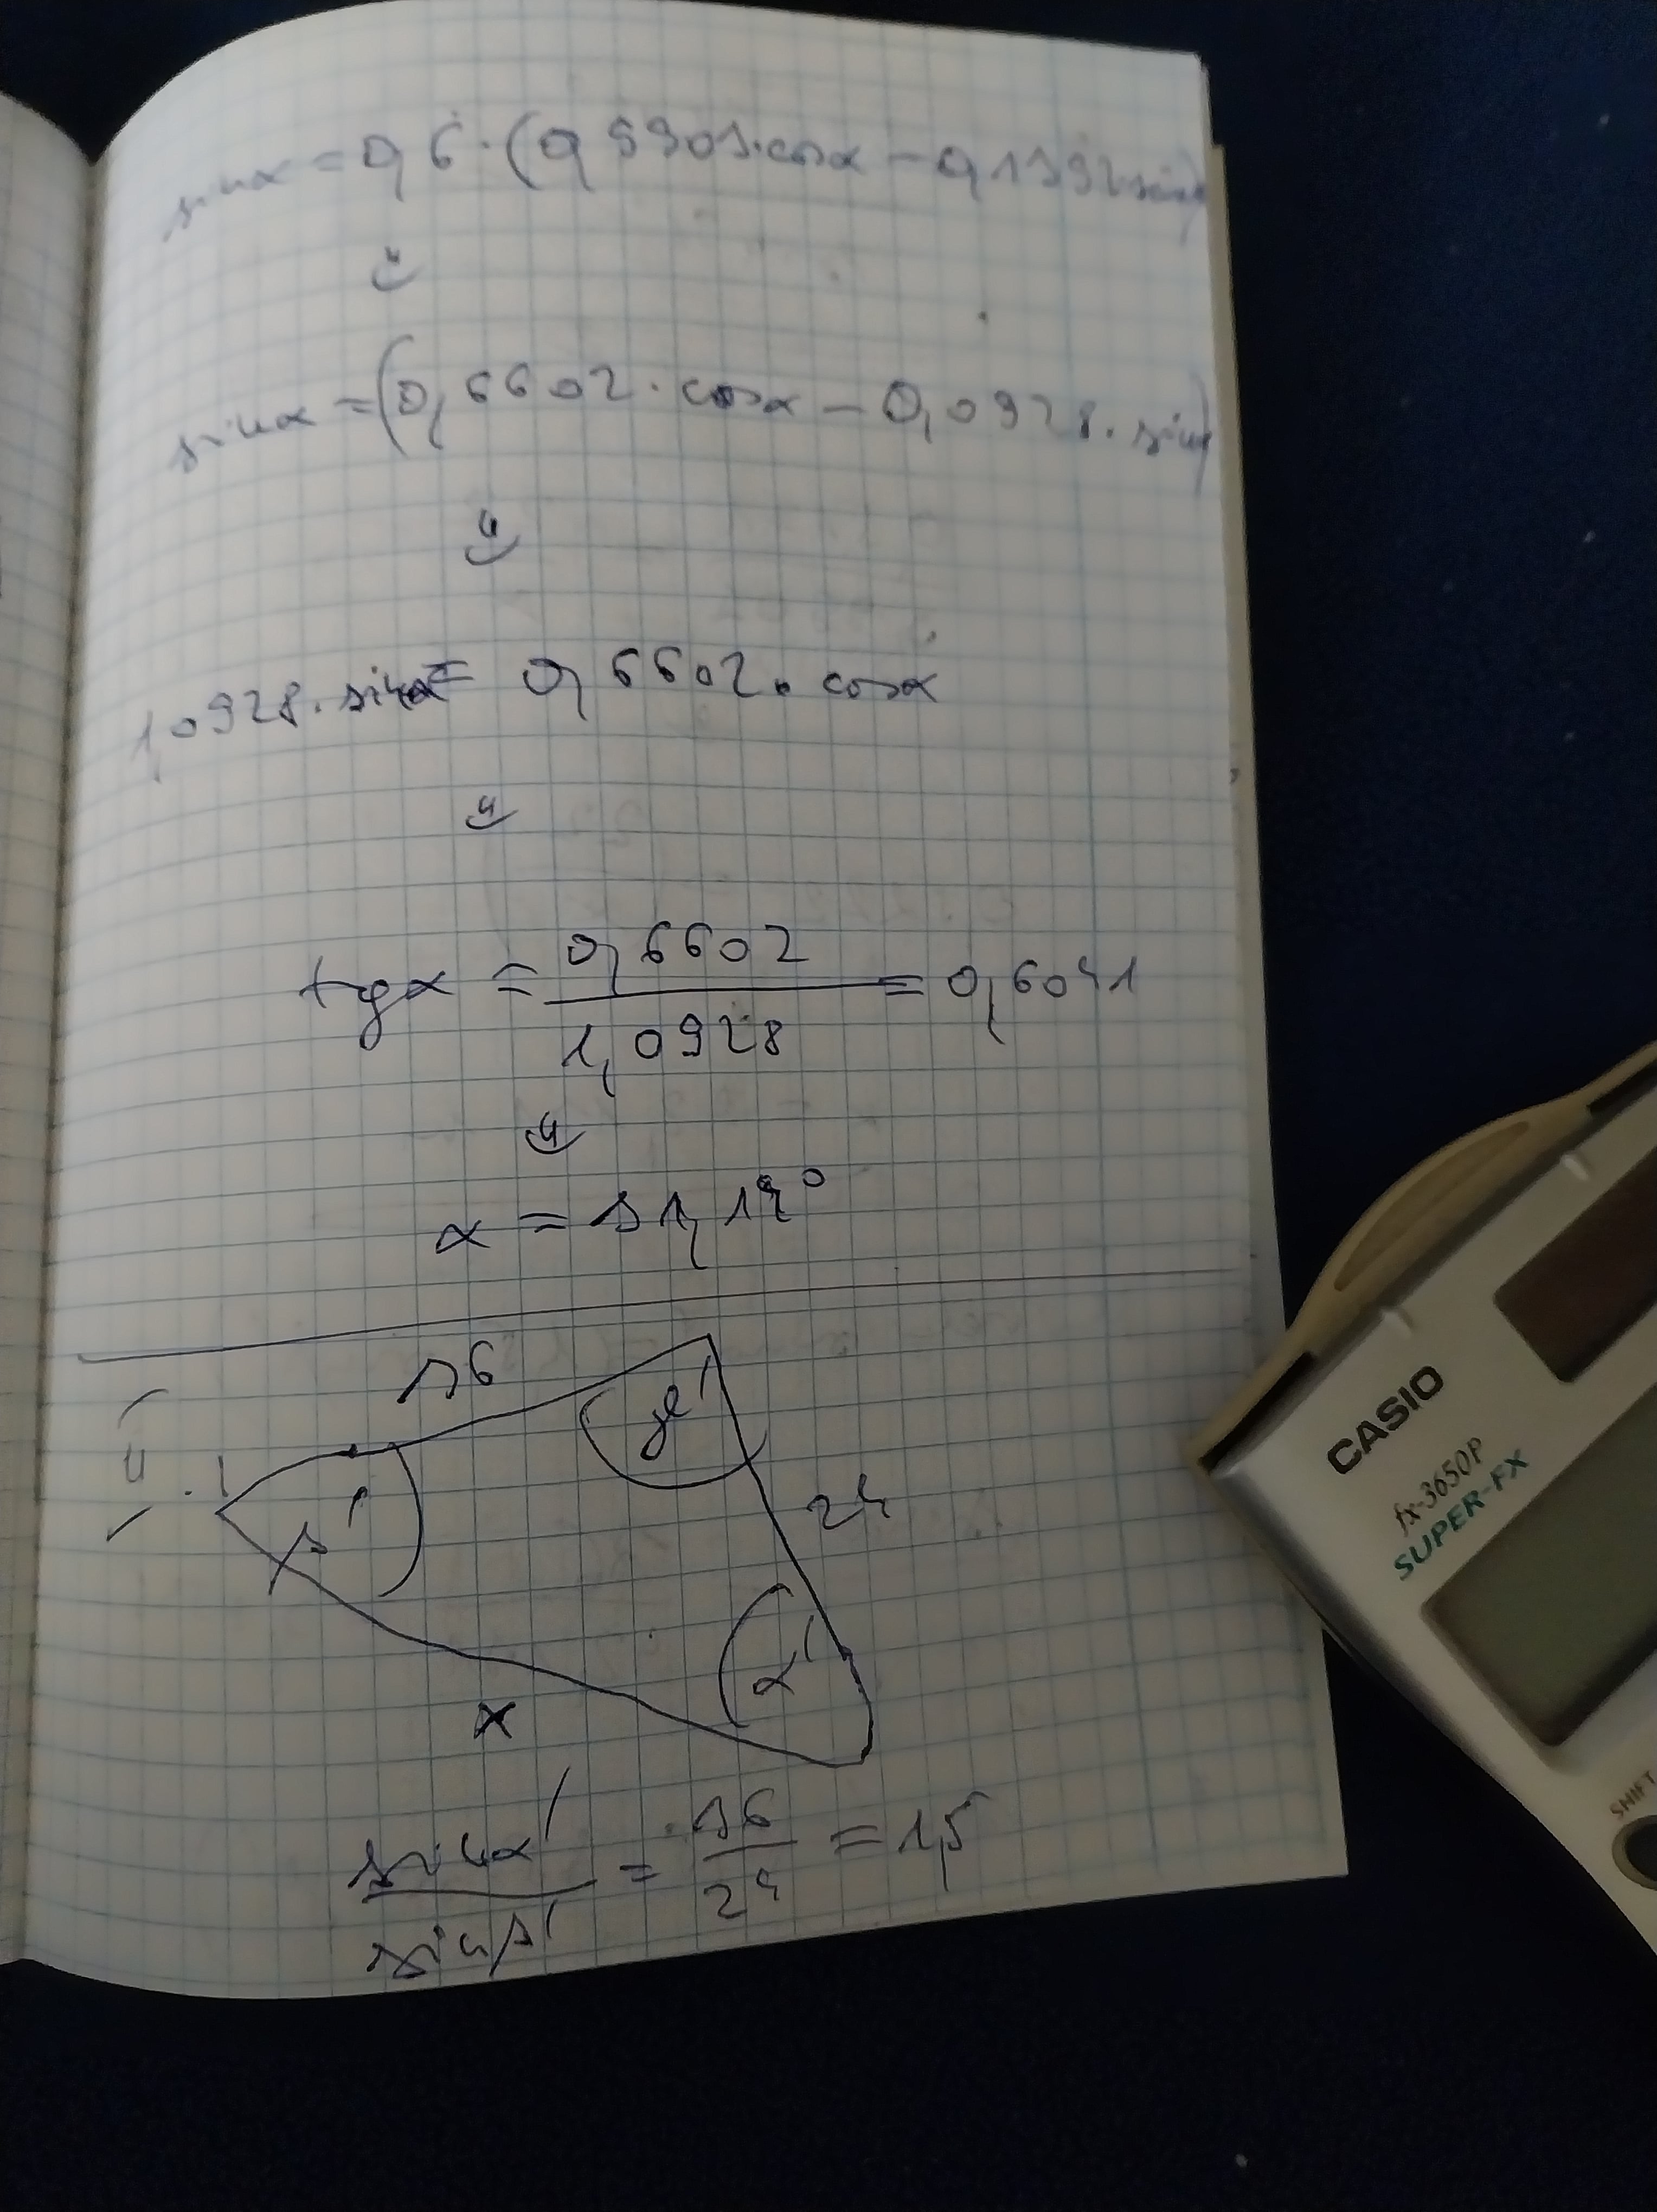 sin α = 0,6·(0,9903·cos α − 0,1392 sin α)
sin α = (0,6602·cos α − 0,0928·sin α)
1,0928·sin α = 0,6602·cos α
tg α = 0,6602 / 1,0928 = 0,6041
α = 31,14°
36
γ'
β'
24
α'
x
sin α' / sin β' = 36 / 24 = 1,5
CASIO
fx-3650P
SUPER-FX
SHIFT